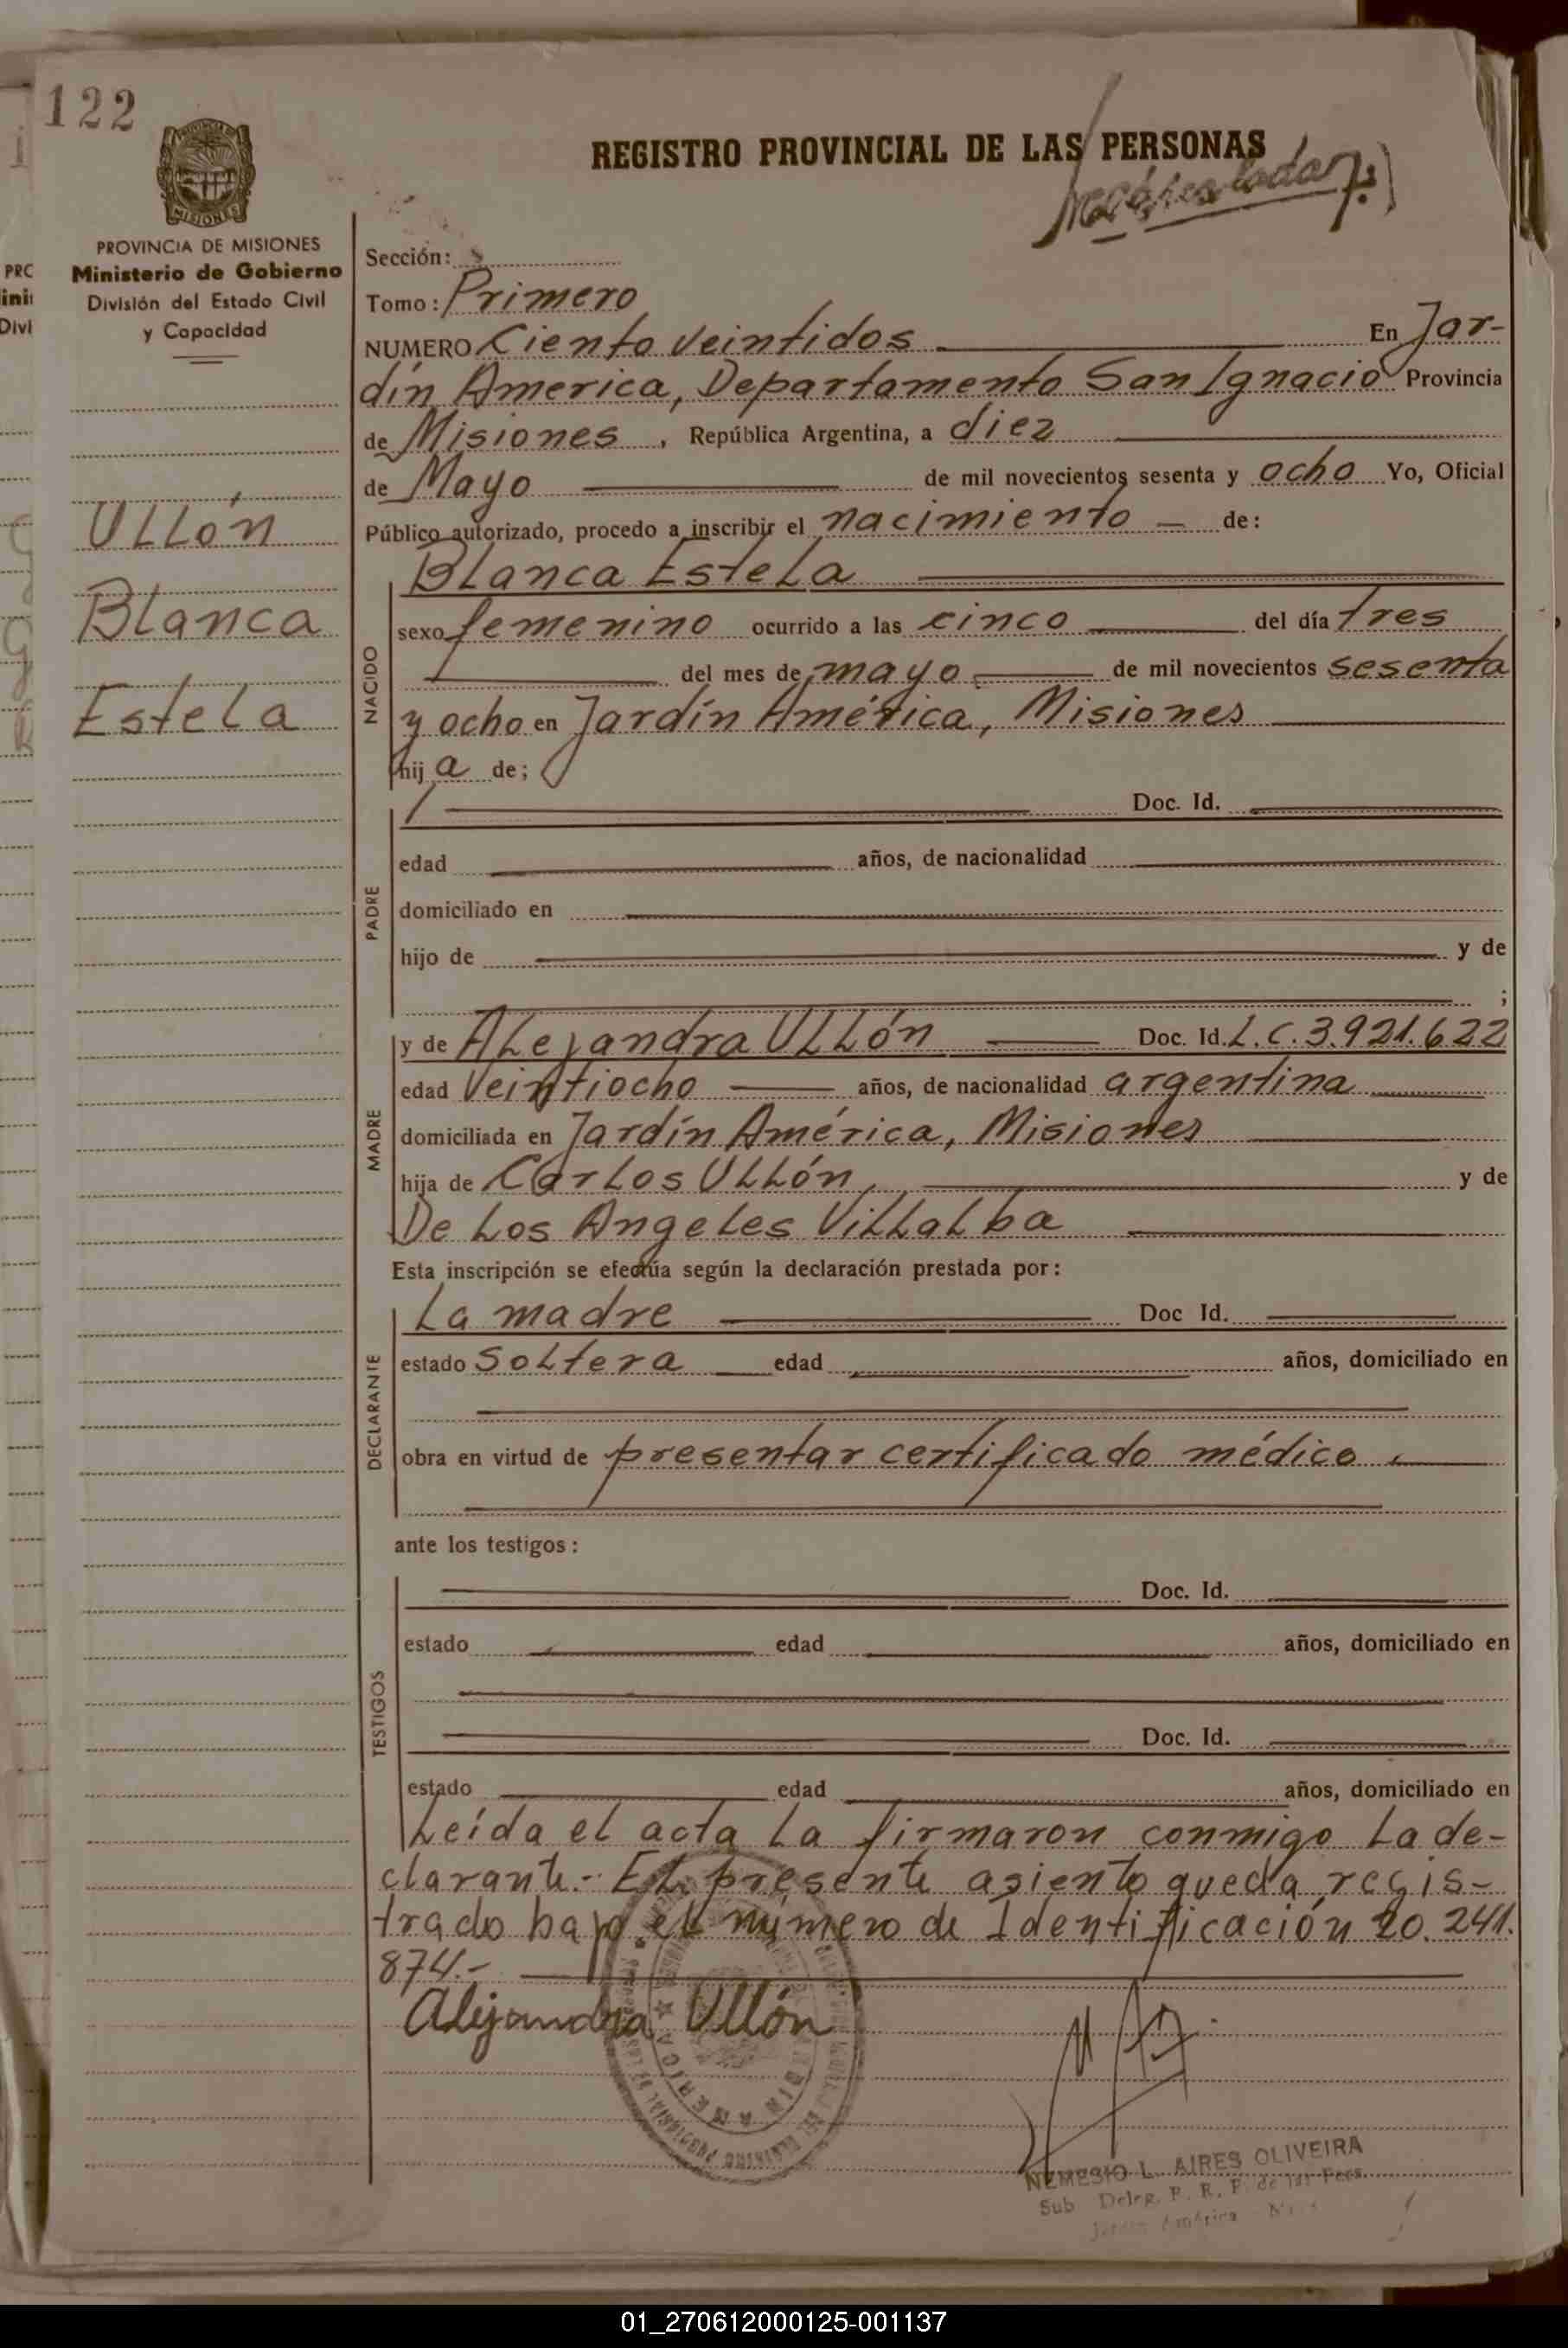 122
REGISTRO PROVINCIAL DE LAS PERSONAS
MISIONES
PROVINCIA DE MISIONES
Ministerio de Gobierno
División del Estado Civil
y Capacidad
Ullón
Blanca
Estela
Sección:
Tomo: Primero
NUMERO Ciento veintidos En Jar-
dín America, Departamento San Ignacio Provincia
de Misiones, República Argentina, a diez
de Mayo de mil novecientos sesenta y ocho Yo, Oficial
Público autorizado, procedo a inscribir el nacimiento de:
NACIDO
Blanca Estela
sexo femenino ocurrido a las cinco del día tres
del mes de mayo de mil novecientos sesenta
y ocho en Jardín América, Misiones
hij a de;
PADRE
Doc. Id.
edad años, de nacionalidad
domiciliado en
hijo de y de
;
MADRE
y de Alejandra Ullón Doc. Id. L.C. 3.921.622
edad veintiocho años, de nacionalidad argentina
domiciliada en Jardín América, Misiones
hija de Carlos Ullón, y de
De Los Angeles Villalba
Esta inscripción se efectúa según la declaración prestada por:
DECLARANTE
La madre Doc Id.
estado soltera edad años, domiciliado en
obra en virtud de presentar certificado médico,
ante los testigos:
TESTIGOS
Doc. Id.
estado edad años, domiciliado en
Doc. Id.
estado edad años, domiciliado en
Leída el acta la firmaron conmigo la de-
clarante.- El presente asiento queda regis-
trado bajo el número de Identificación 20.241.
874.-
Alejandra Ullón
NEMESIO L. AIRES OLIVEIRA
Sub Deleg. P. R. P. de las Pers.
Jardín América
01_270612000125-001137